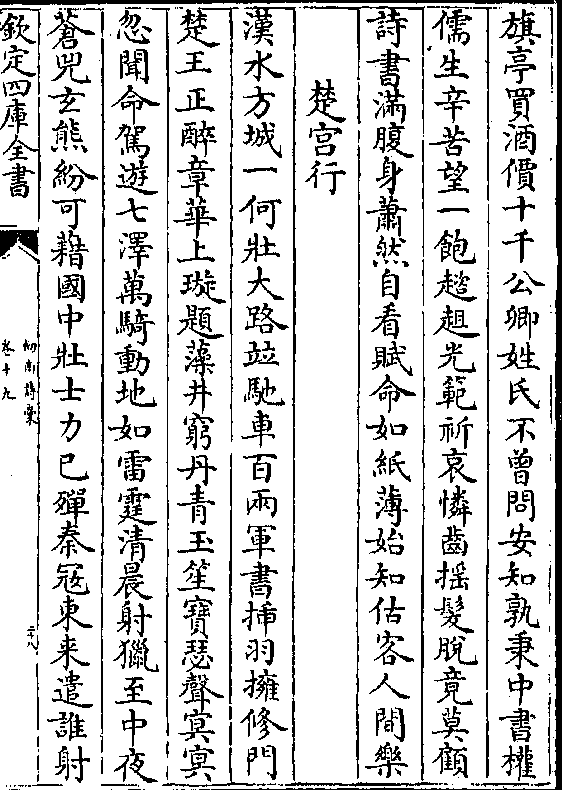 旗亭買酒價十千公卿姓氏不曾問安知孰秉中書權
儒生辛苦望一飽趑趄光範祈哀憐齒搖髮脫竟莫顧
詩書滿腹身蕭然自看賦命如紙薄始知估客人間樂
楚宫行
漢水方城一何壯大路竝馳車百兩軍書揷羽擁修門
楚王正醉章華上璇題藻井窮丹青玉笙寶瑟聲冥冥
忽聞命駕遊七澤萬騎動地如雷霆清晨射獵至中夜
蒼兕玄熊紛可藉國中壯士力已殫秦寇東来遣誰射
欽定四庫全書
劍南詩稾
卷十九
二十八